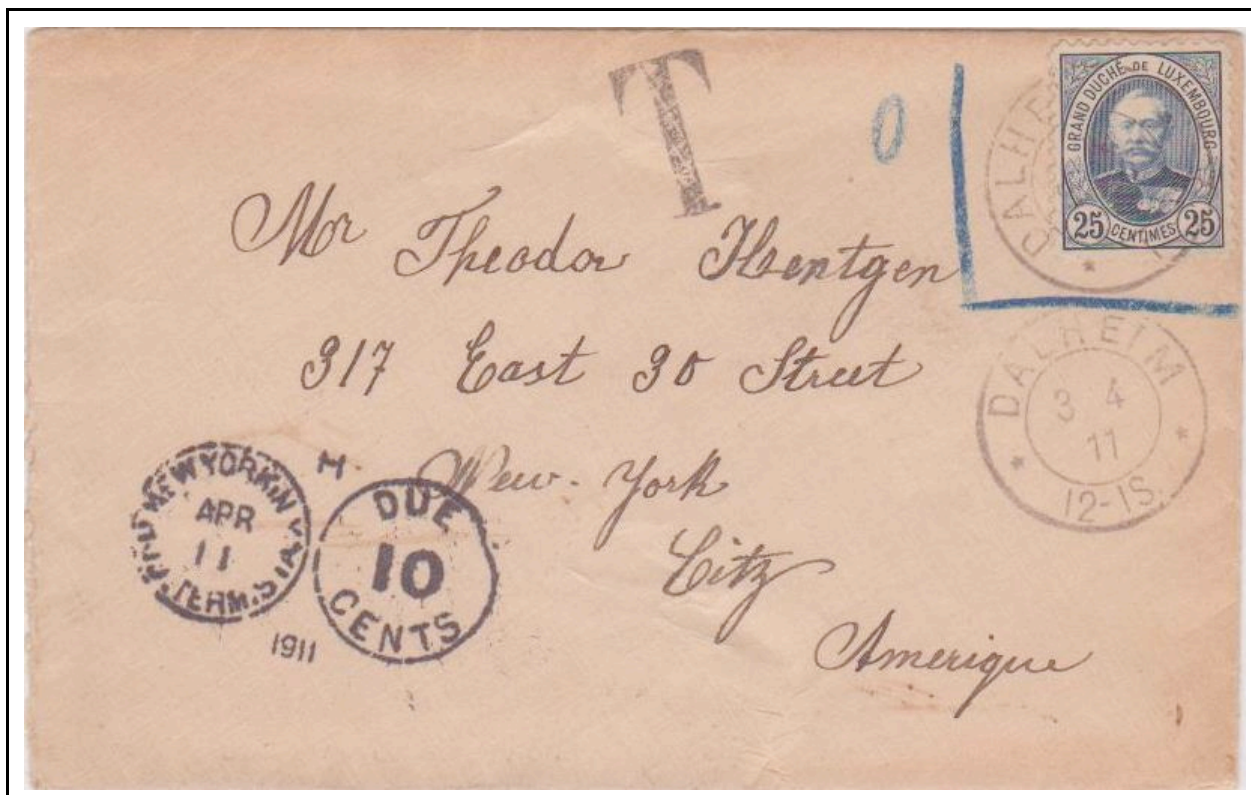 T
0
GRAND DUCHÉ DE LUXEMBOURG
25 CENTIMES 25
DALHE
Mr Theodor Hentgen
317 East 30 Street
New-York
City
Amerique
DALHEIM
3 4
11
12-1S.
NEW YORK, N.Y.
APR
11
1911
H
DUE
10
CENTS